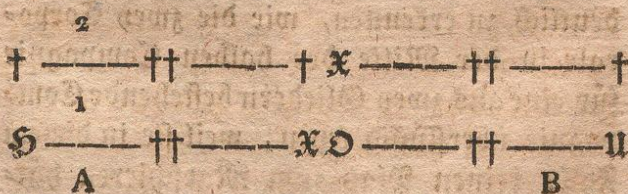 2
† —— †† —— † X —— †† —— †
1
H —— †† —— X O —— †† —— U
A B